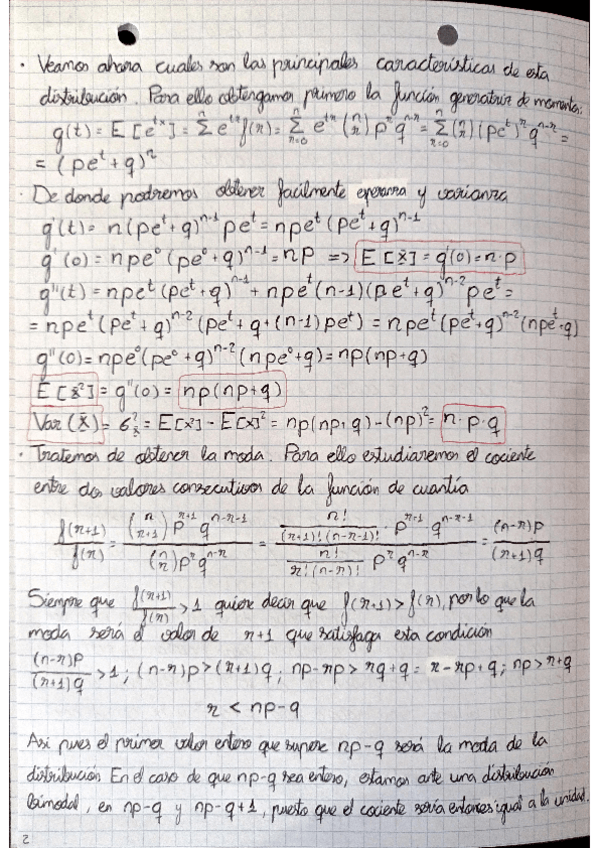 · Veamos ahora cuales son las principales características de esta
distribución. Para ello obtengamos primero la función generatriz de momentos:
g(t) = E[e^{tx}] = Σ^n e^{tx} f(x) = Σ_{x=0}^n e^{tx} (n x) p^x q^{n-x} = Σ_{x=0}^n (n x) (pe^t)^x q^{n-x} =
= (pe^t + q)^n
· De donde podremos obtener facilmente eperanza y varianza
g'(t) = n(pe^t + q)^{n-1} pe^t = npe^t (pe^t + q)^{n-1}
g'(0) = npe^0 (pe^0 + q)^{n-1} = np => E[x] = g'(0) = n·p
g''(t) = npe^t (pe^t + q)^{n-1} + npe^t (n-1)(pe^t + q)^{n-2} pe^t =
= npe^t (pe^t + q)^{n-2} (pe^t + q + (n-1)pe^t) = npe^t (pe^t + q)^{n-2} (npe^t + q)
g''(0) = npe^0 (pe^0 + q)^{n-2} (npe^0 + q) = np(np + q)
E[x²] = g''(0) = np(np + q)
Var(x) = σ²_x = E[x²] - E[x]² = np(np + q) - (np)² = n·p·q
· Tratemos de obtener la moda. Para ello estudiaremos el cociente
entre dos valores consecutivos de la función de cuantía
f(x+1)/f(x) = ((n x+1) p^{x+1} q^{n-x-1})/((n x) p^x q^{n-x}) = (n!/((x+1)!(n-x-1)!) · p^{x+1} q^{n-x-1})/(n!/(x!(n-x)!) p^x q^{n-x}) = (n-x)p/((x+1)q)
Siempre que f(x+1)/f(x) > 1 quiere decir que f(x+1) > f(x), por lo que la
moda será el valor de x+1 que satisfaga esta condición
(n-x)p/((x+1)q) > 1 ; (n-x)p > (x+1)q ; np - xp > xq + q = x - xp + q ; np > x + q
x < np - q
Asi pues el primer valor entero que supere np-q será la moda de la
distribución. En el caso de que np-q sea entero, estamos ante una distribución
bimodal, en np-q y np-q+1, puesto que el cociente sería entonces igual a la unidad.
2